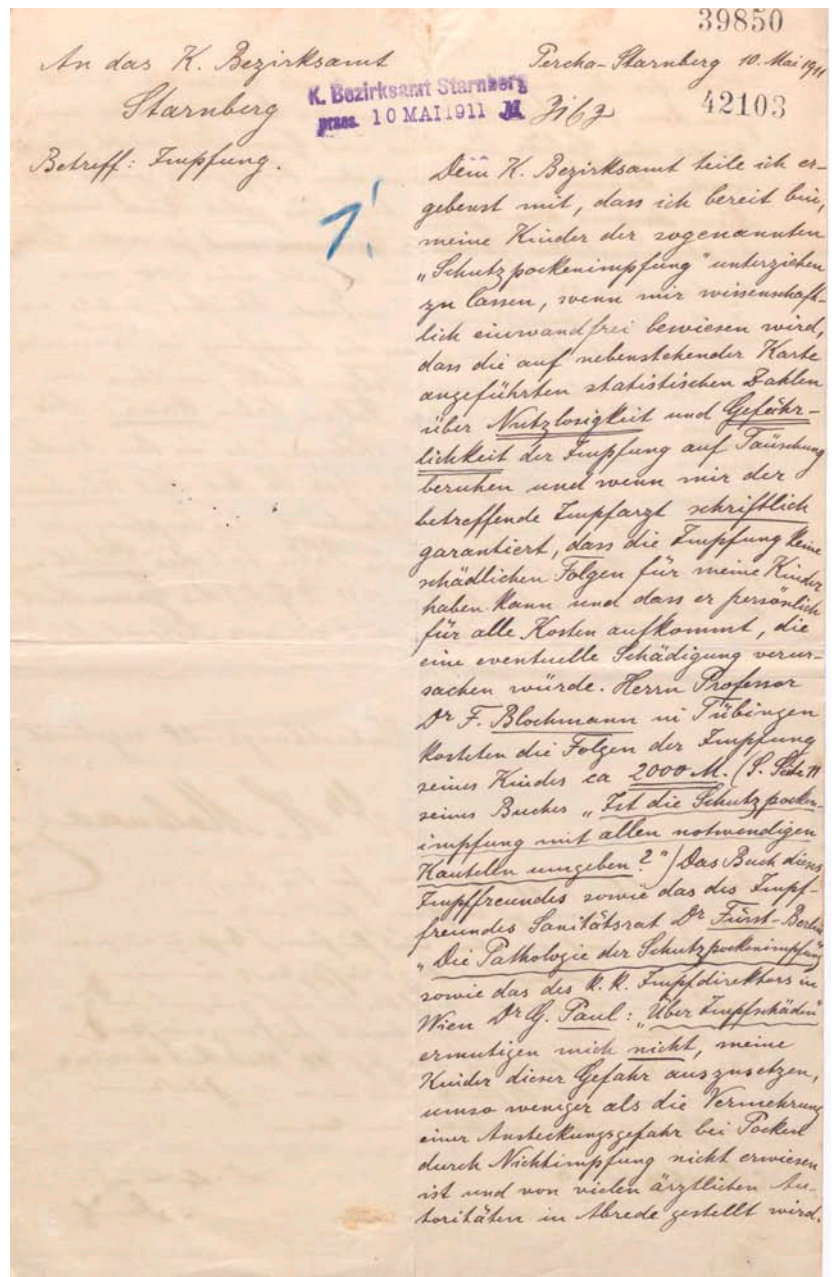 39850
An das K. Bezirksamt
Percha-Starnberg 10. Mai 1911
Starnberg
K. Bezirksamt Starnberg
praes. 10 MAI 1911
42103
Betreff: Impfung.
1!
Dem K. Bezirksamt teile ich er-
gebenst mit, dass ich bereit bin,
meine Kinder der sogenannten
„Schutzpockenimpfung" unterziehen
zu lassen, wenn mir wissenschaft-
lich einwandfrei bewiesen wird,
dass die auf nebenstehender Karte
angeführten statistischen Zahlen
über Nutzlosigkeit und Gefähr-
lichkeit der Impfung auf Täuschung
beruhen und wenn mir der
betreffende Impfarzt schriftlich
garantiert, dass die Impfung keine
schädlichen Folgen für meine Kinder
haben kann und dass er persönlich
für alle Kosten aufkommt, die
eine eventuelle Schädigung verur-
sachen würde. Herrn Professor
Dr F. Blochmann in Tübingen
kosteten die Folgen der Impfung
seines Kindes ca 2000 M. (S. Seite 11
seines Buches „Ist die Schutzpocken-
impfung mit allen notwendigen
Kautelen umgeben?") Das Buch dieses
Impffreundes sowie das des Impf-
freundes Sanitätsrat Dr Fürst-Berlin
„Die Pathologie der Schutzpockenimpfung
sowie das des K. K. Impfdirektors in
Wien Dr G. Paul: „Über Impfschäden"
ermutigen mich nicht, meine
Kinder dieser Gefahr auszusetzen,
umso weniger als die Vermehrung
einer Ansteckungsgefahr bei Pocken
durch Nichtimpfung nicht erwiesen
ist und von vielen ärztlichen Au-
toritäten in Abrede gestellt wird.